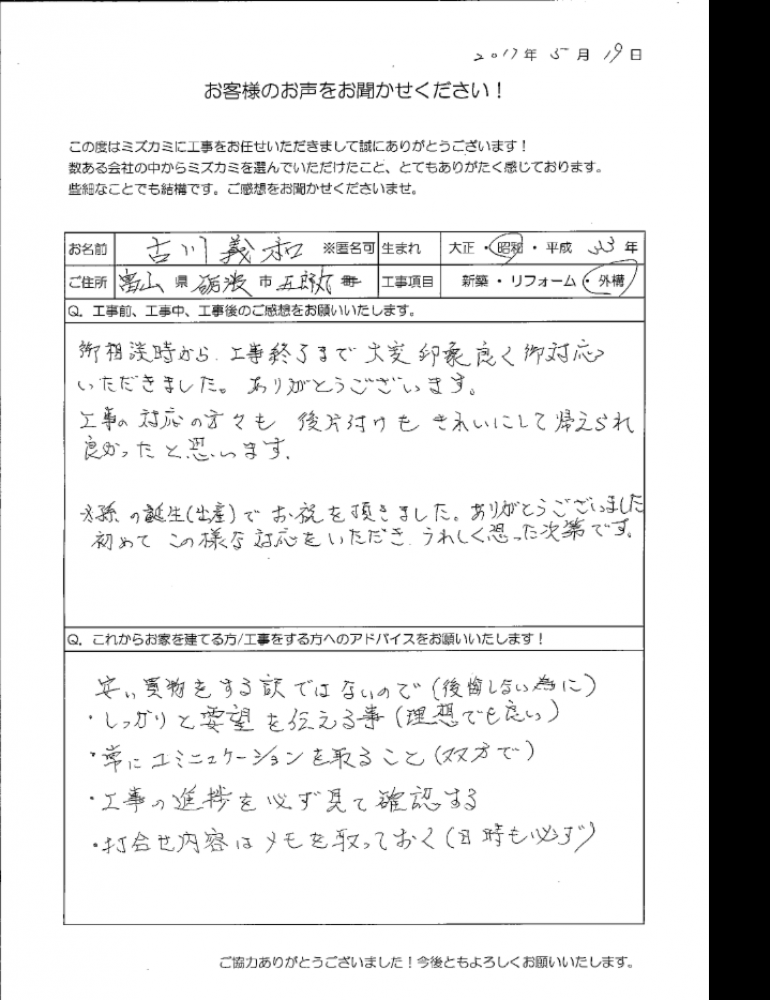 2017年 5月 19日
お客様のお声をお聞かせください！
この度はミズカミに工事をお任せいただきまして誠にありがとうございます！
数ある会社の中からミズカミを選んでいただけたこと、とてもありがたく感じております。
些細なことでも結構です。ご感想をお聞かせくださいませ。
お名前 古川 義和 ※匿名可 生まれ 大正・昭和・平成 33 年
ご住所 富山 県 砺波 市 五郎丸 工事項目 新築・リフォーム・外構
Q. 工事前、工事中、工事後のご感想をお願いいたします。
御相談時から、工事終了まで大変印象良く御対応
いただきました。ありがとうございます。
工事の対応の方々も 後片付けも きれいにして帰えられ
良かったと思います。
※孫の誕生(出産)でお祝を頂きました。ありがとうございました
初めて この様な対応をいただき、うれしく思った次第です。
Q. これからお家を建てる方/工事をする方へのアドバイスをお願いいたします！
安い買物をする訳ではないので(後悔しない為に)
・しっかりと要望を伝える事(理想でも良い)
・常にコミニュケーションを取ること(双方で)
・工事の進捗を必ず見て確認する
・打合せ内容はメモを取っておく(日時も必ず)
ご協力ありがとうございました！今後ともよろしくお願いいたします。